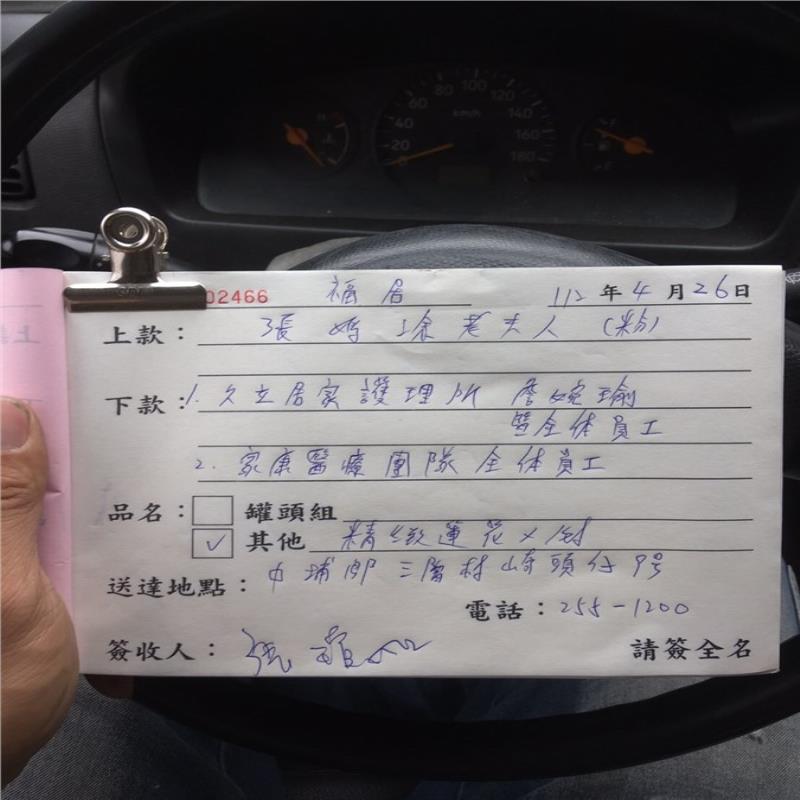 02466 福居 112年4月26日
上款：張媽徐老夫人(粉)
下款：1.久立居家護理所 詹婉瑜
暨全体員工
2.家康醫療團隊全体員工
品名：罐頭組
✓ 其他 精緻蓮花×1対
送達地點：中埔鄉三層村崎頭仔9号
電話：255-1200
簽收人： 請簽全名
20 40 60 80 100 120 140 160 180
km/h